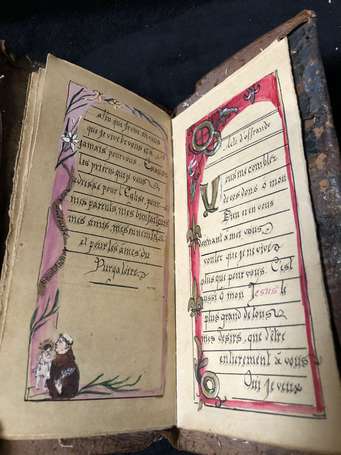 afin que je vive en vous
que je vive de vous à
jamais pour vous
les prieres que je vous
adresse pour l'Eglise, pour
mes parents, mes bienfaiteurs
mes amis, mes ennemis
et pour les ames du
Purgatoire
Acte d'offrande
Vous me comblez
de vos dons, o mon
Dieu et en vous
donnant a moi vous
voulez que je ne vive
plus que pour vous. C'est
aussi o mon Jesus le
plus grand de tous
mes desirs, que d'être
entierement à vous
Oui je veux